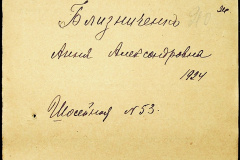 Близниченко
Анна Александровна
1924
Шосейная № 53.